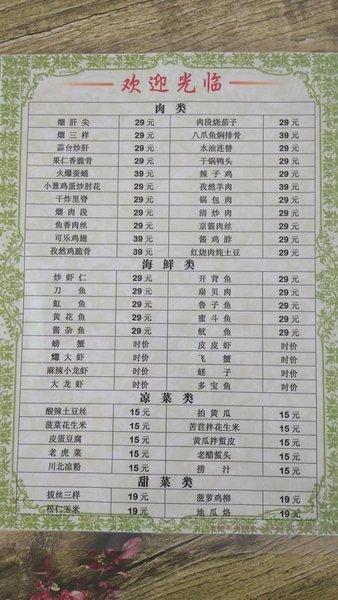 欢迎光临
肉类
熘肝尖 29元 肉段烧茄子 29元
熘三样 29元 八爪鱼焖排骨 39元
蒜台炒肝 29元 水油连替 29元
果仁香脆骨 29元 干锅鸭头 29元
火爆蚕蛹 39元 辣子鸡 29元
小葱鸡蛋炒肘花 29元 孜然羊肉 39元
干炸里脊 29元 锅包肉 29元
熘肉段 29元 清炒肉 29元
鱼香肉丝 29元 京酱肉丝 29元
可乐鸡翅 39元 酱鸡脖 29元
孜然鸡骨 39元 红烧肉炖土豆 29元
海鲜类
炒虾仁 29元 开背鱼 29元
刀鱼 29元 扇贝肉 29元
缸鱼 29元 鲁子鱼 29元
黄花鱼 29元 蜜斗鱼 29元
酱杂鱼 29元 鱿鱼 29元
螃蟹 时价 皮皮虾 时价
熘大虾 时价 飞蟹 时价
麻辣小龙虾 时价 蛏子 时价
大龙虾 时价 多宝鱼 时价
凉菜类
酸辣土豆丝 15元 拍黄瓜 15元
菠菜花生米 15元 苦苣拌花生米 15元
皮蛋豆腐 15元 黄瓜拌蜇皮 15元
老虎菜 15元 老醋蜇头 15元
川北凉粉 15元 捞汁 15元
甜菜类
拔丝三样 19元 菠萝鸡柳 19元
松仁玉米 19元 地瓜烙 19元